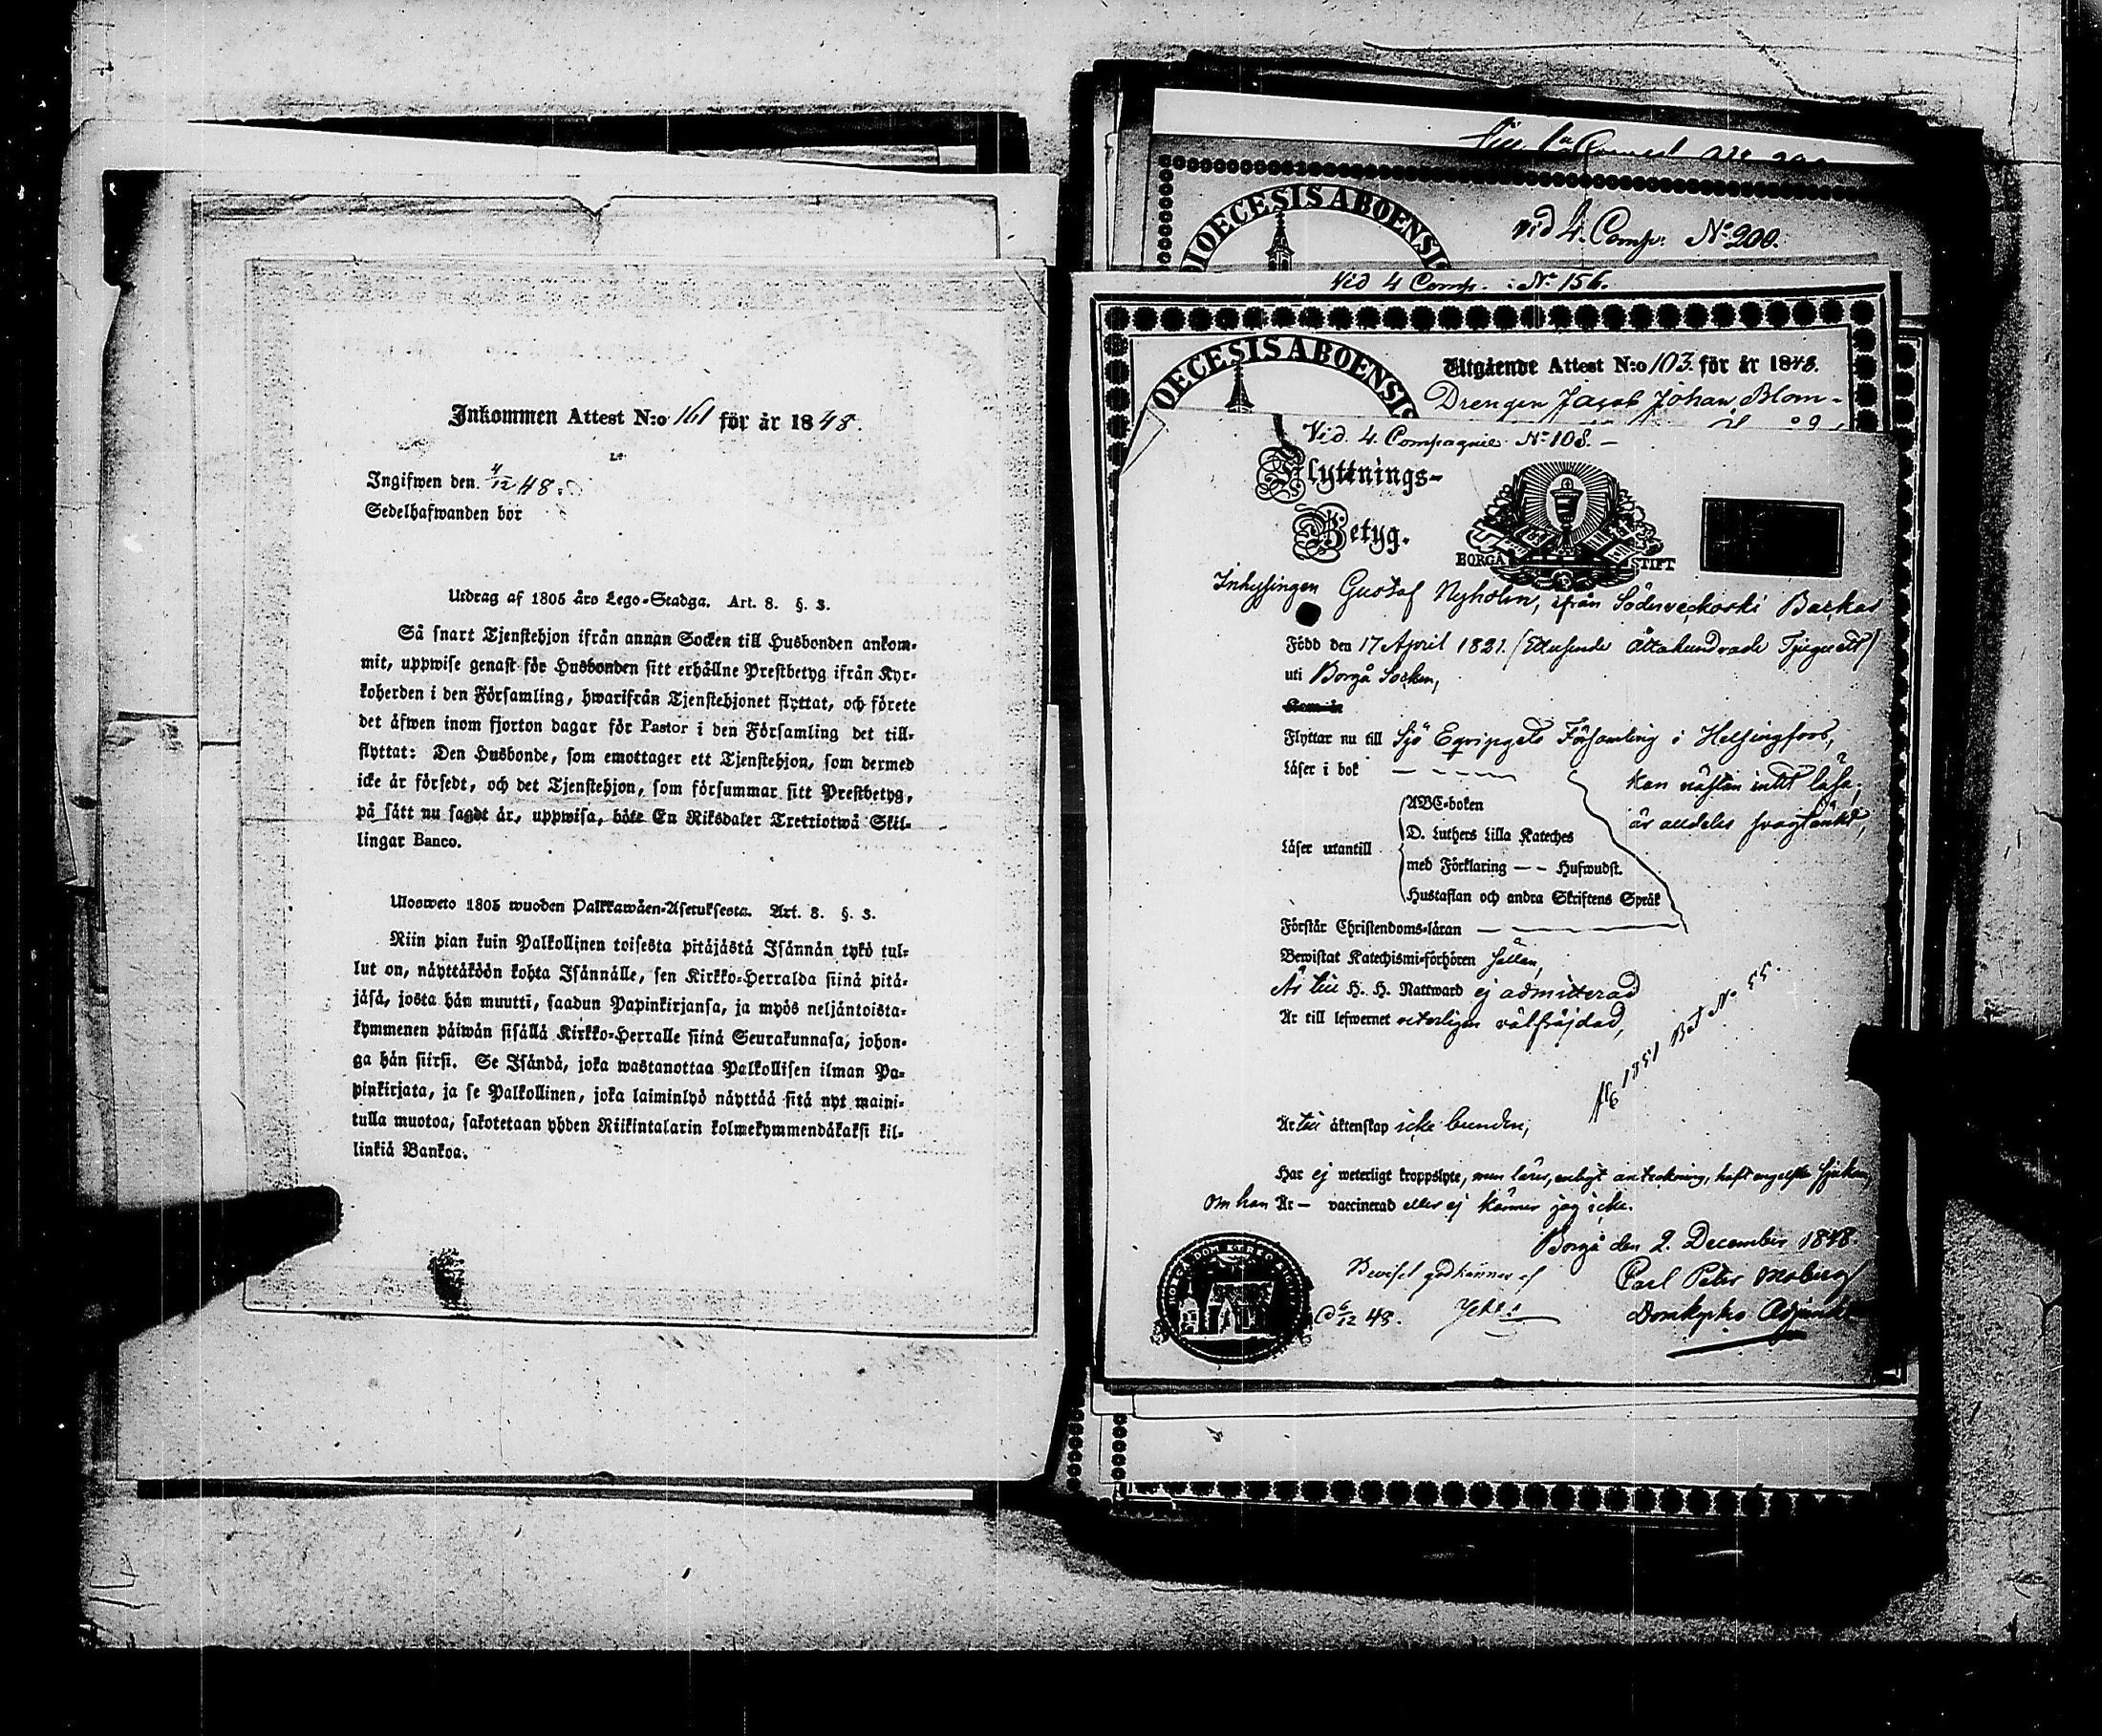 Inkommen Attest N:o 161 för år 1848.
Ingifwen den 4/12 48.
Sedelhafwanden bor
Utdrag af 1805 års Lego-Stadga. Art. 8. §. 3.
Så snart Tjenstehjon ifrån annan Socken till Husbonden ankom-
mit, uppwise genast för Husbonden sitt erhållne Prestbetyg ifrån Kyr-
koherden i den Församling, hwarifrån Tjenstehjonet flyttat, och förete
det äfwen inom fjorton dagar för Pastor i den Församling det till-
flyttat: Den Husbonde, som emottager ett Tjenstehjon, som dermed
icke är försedt, och det Tjenstehjon, som försummar sitt Prestbetyg,
på sätt nu sagdt är, uppwisa, böte En Riksdaler Trettiotwå Skil-
lingar Banco.
Ulosweto 1805 wuoden Palkkawäen-Asetuksesta. Art. 8. §. 3.
Niin pian kuin Palkollinen toisesta pitäjästä Isännän tykö tul-
lut on, näyttäköön kohta Isännälle, sen Kirkko-Herralda siinä pitä-
jäsä, josta hän muutti, saadun Papinkirjansa, ja myös neljäntoista-
kymmenen päiwän sisällä Kirkko-Herralle siinä Seurakunnasa, johon-
ga hän siirsi. Se Isändä, joka wastanottaa Palkollisen ilman Pa-
pinkirjata, ja se Palkollinen, joka laiminlyö näyttää sitä nyt maini-
tulla muotoa, sakotetaan yhden Riikintalarin kolmekymmendäkaksi kil-
linkiä Bankoa.
DIOECESIS ABOENSIS
vid 4. Comp. No 200.
Vid 4 Comp. No 156.
OECESIS ABOENSIS
Utgående Attest N:o 103. för år 1848.
Drengen Jacob Johan Blom-
Vid. 4. Compagnie No 108. –
Flyttnings-
Betyg.
BORGÅ STIFT
Inhysingen Gustaf Nyholm, ifrån Söderveckoski Backas
Född den 17 April 1821. (Ettusende Åttahundrade Tjuguett)
uti Borgå Socken,
Flyttar nu till Sjö Eqvipgets Församling i Helsingfors,
Läser i bok
kan nästan intet läsa;
ABC-boken
är alldeles svagtänkt,
D. Luthers Lilla Kateches
Läser utantill
med Förklaring — — Hufwudst.
Hustaflan och andra Skriftens Språk
Förstår Christendoms-läran
Bewistat Katechismi-förhören sällan,
Är till H. H. Nattward ej admitterad
Är till lefwernet veterligen välfräjdad,
1851 Bet No 55.
Är till äktenskap icke bunden,
Har ej weterligt kroppslyte, men lärer, enligt anteckning, haft engelska sjukan,
Om han Är — vaccinerad eller ej känner jag icke.
Borgå den 2. December 1848
Beviset godkännes af
Carl Peter Moberg
6/12 48.
Domkyrko Adjunkt